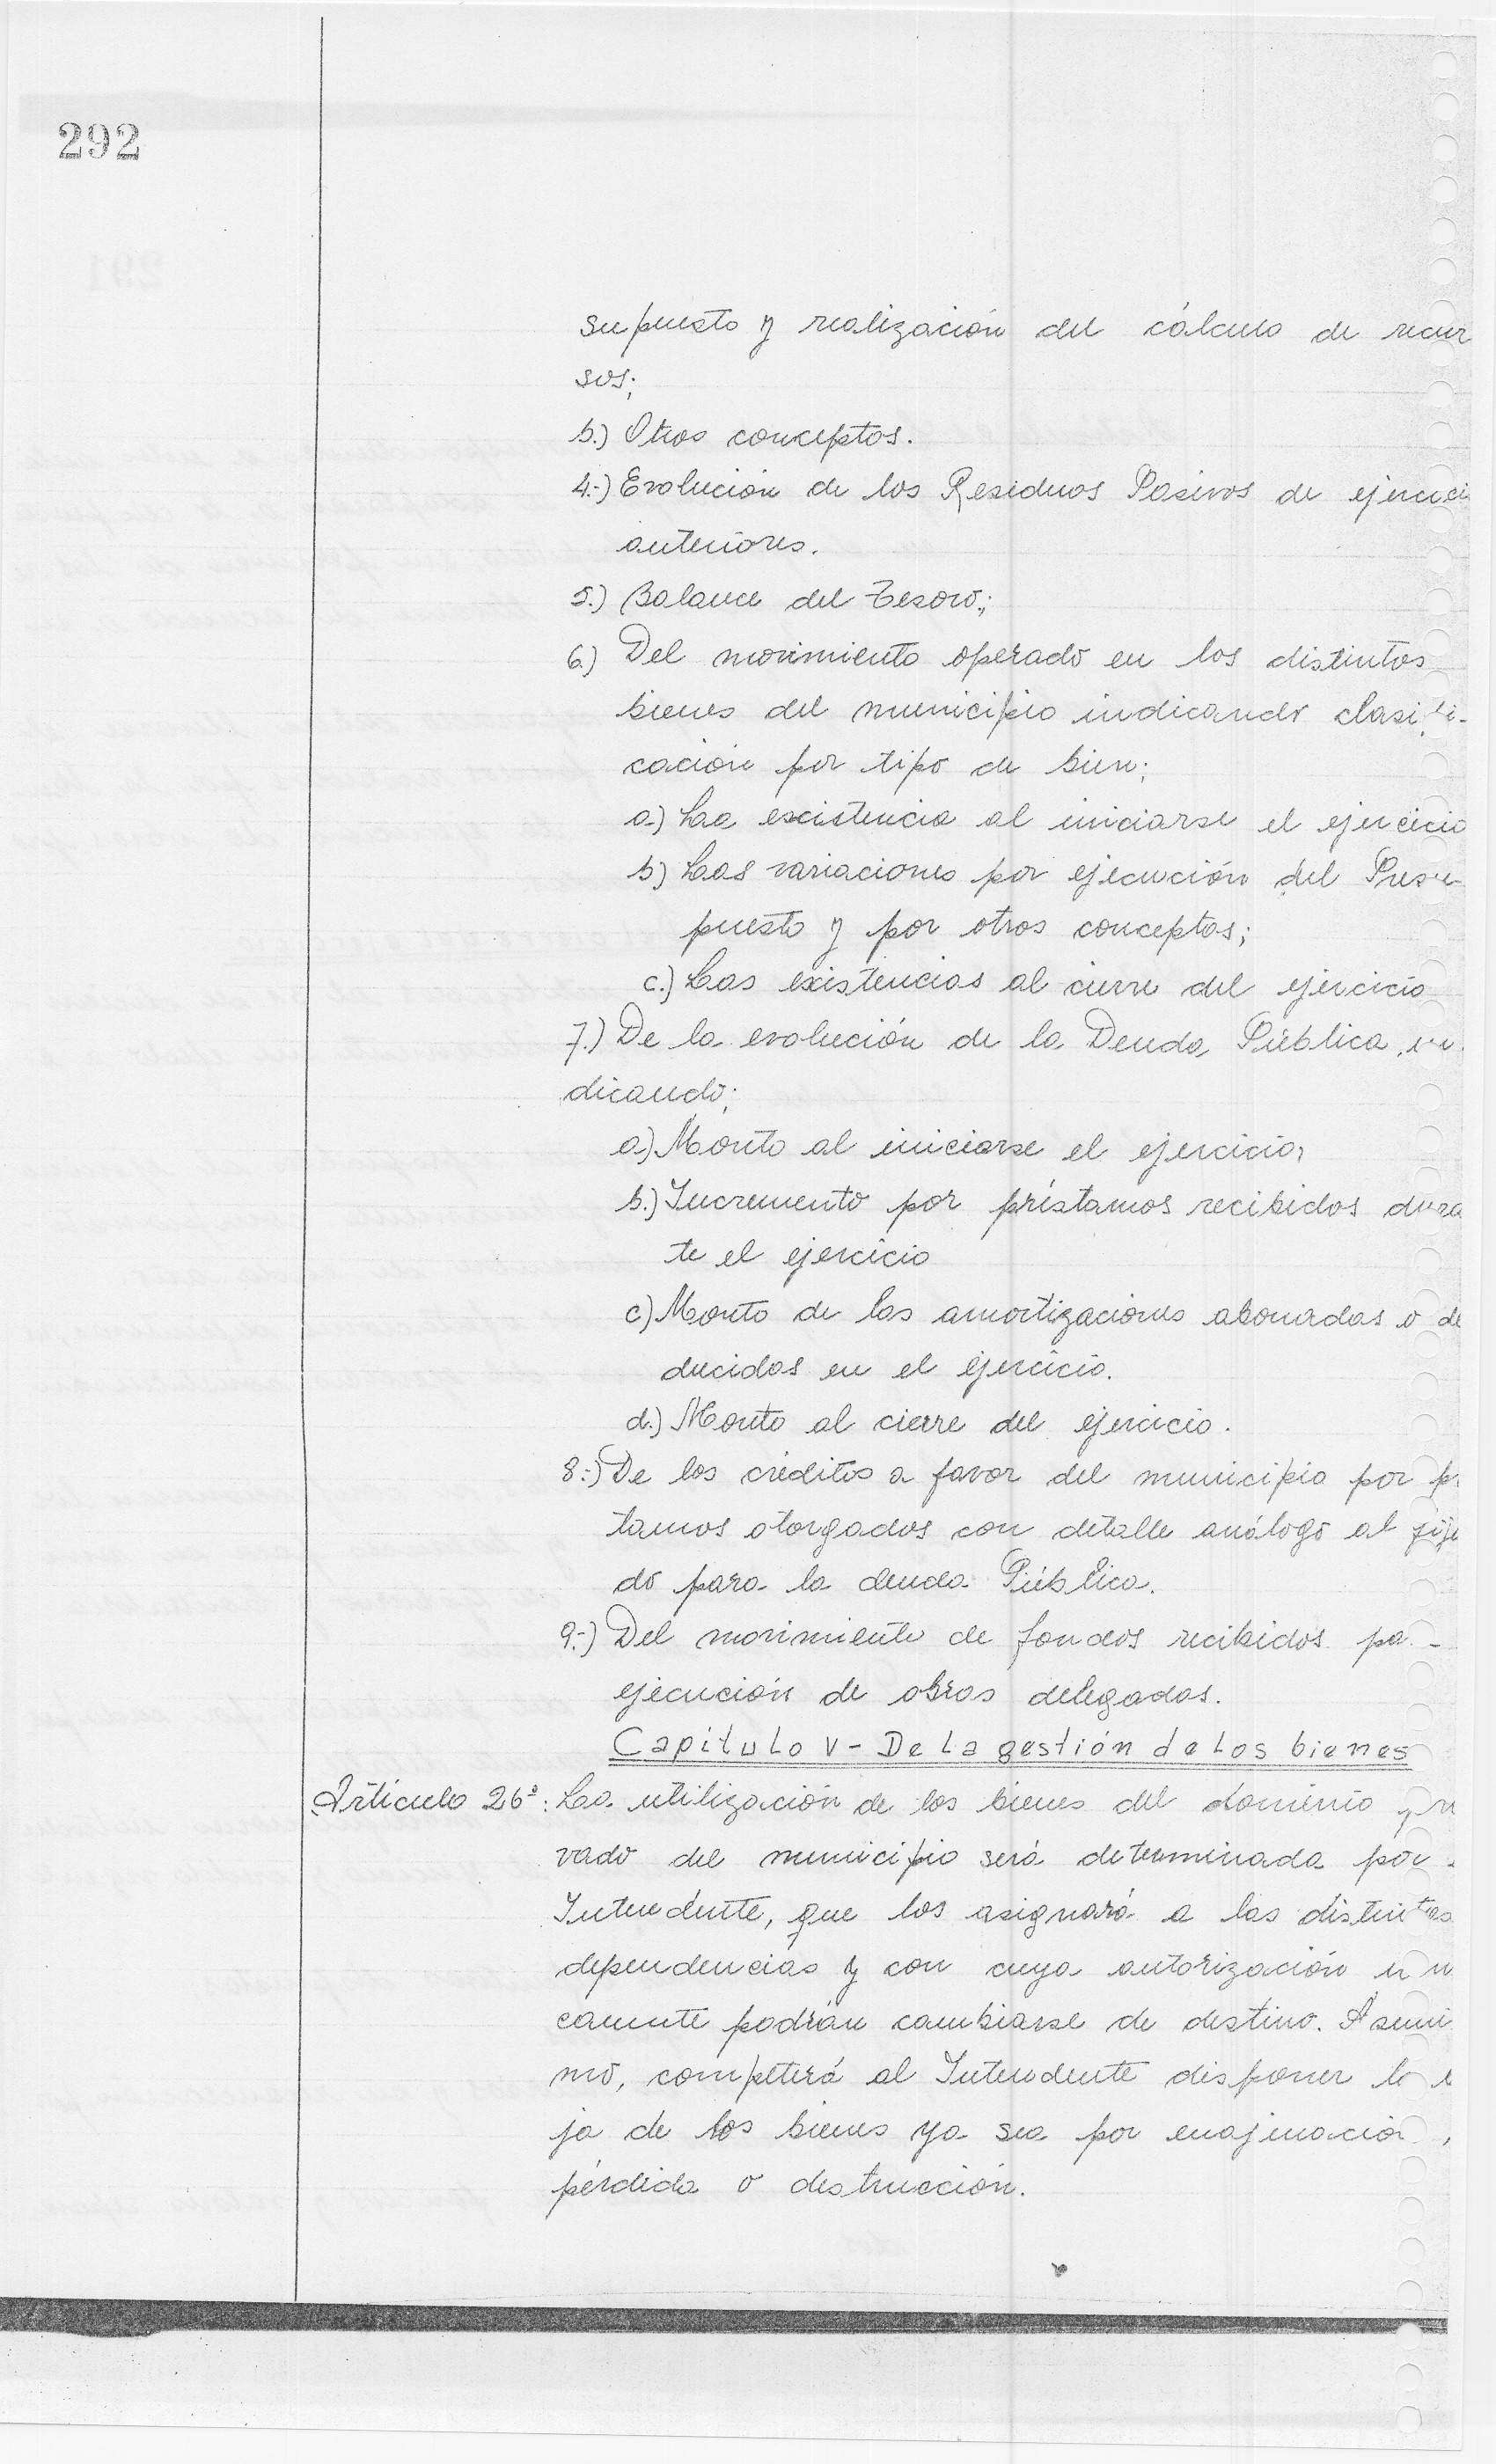 292
supuesto y realización del cálculo de recur
sos;
b.) Otros conceptos.
4.-) Evolución de los Residuos Pasivos de ejercici
anteriores.
5.) Balance del Tesoro.;
6.) Del movimiento operado en los distintos
bienes del municipio indicando clasifi-
cación por tipo de bien;
a.) Las existencia al iniciarse el ejercicio
b) Las variaciones por ejecución del Presu
puesto y por otros conceptos;
c.) Las existencias al cierre del ejercicio
7.) De la evolución de la Deuda Pública, in
dicando;
a.) Monto al iniciarse el ejercicio,
b.) Incremento por préstamos recibidos dura
te el ejercicio
c) Monto de las amortizaciones abonadas o de
ducidas en el ejercicio.
d.) Monto al cierre del ejercicio.
8.-) De los créditos a favor del municipio por p
tamos otorgados con detalle análogo al fija
do para la deuda Pública.
9.-) Del movimiento de fondos recibidos pa
ejecución de obras delegadas.
Capítulo V - De La gestión de Los bienes
Artículo 26º: La utilización de los bienes del dominio pri
vado del municipio será determinada por
Intendente, que los asignará a las distintas
dependencias y con cuya autorización úni
camente podrán cambiarse de destino. Asimi
mo, competerá al Intendente disponer la
ja de los bienes ya sea por enajenación,
pérdida o destrucción.